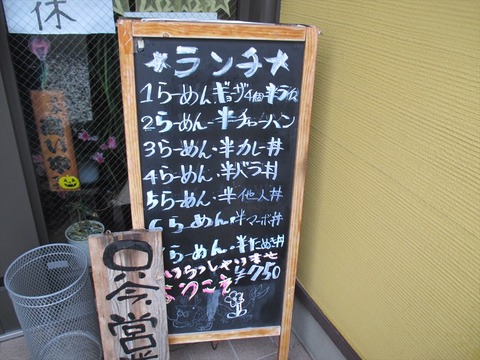 休
★ランチ★
1らーめんギョーザ4個半ライス
2らーめん・半チャーハン
3らーめん・半カレー丼
4らーめん・半バラ丼
5らーめん・半他人丼
6らーめん・半マーボ丼
らーめん・半たぬき丼
いらっしゃいませ
¥750
ようこそ
只今営業